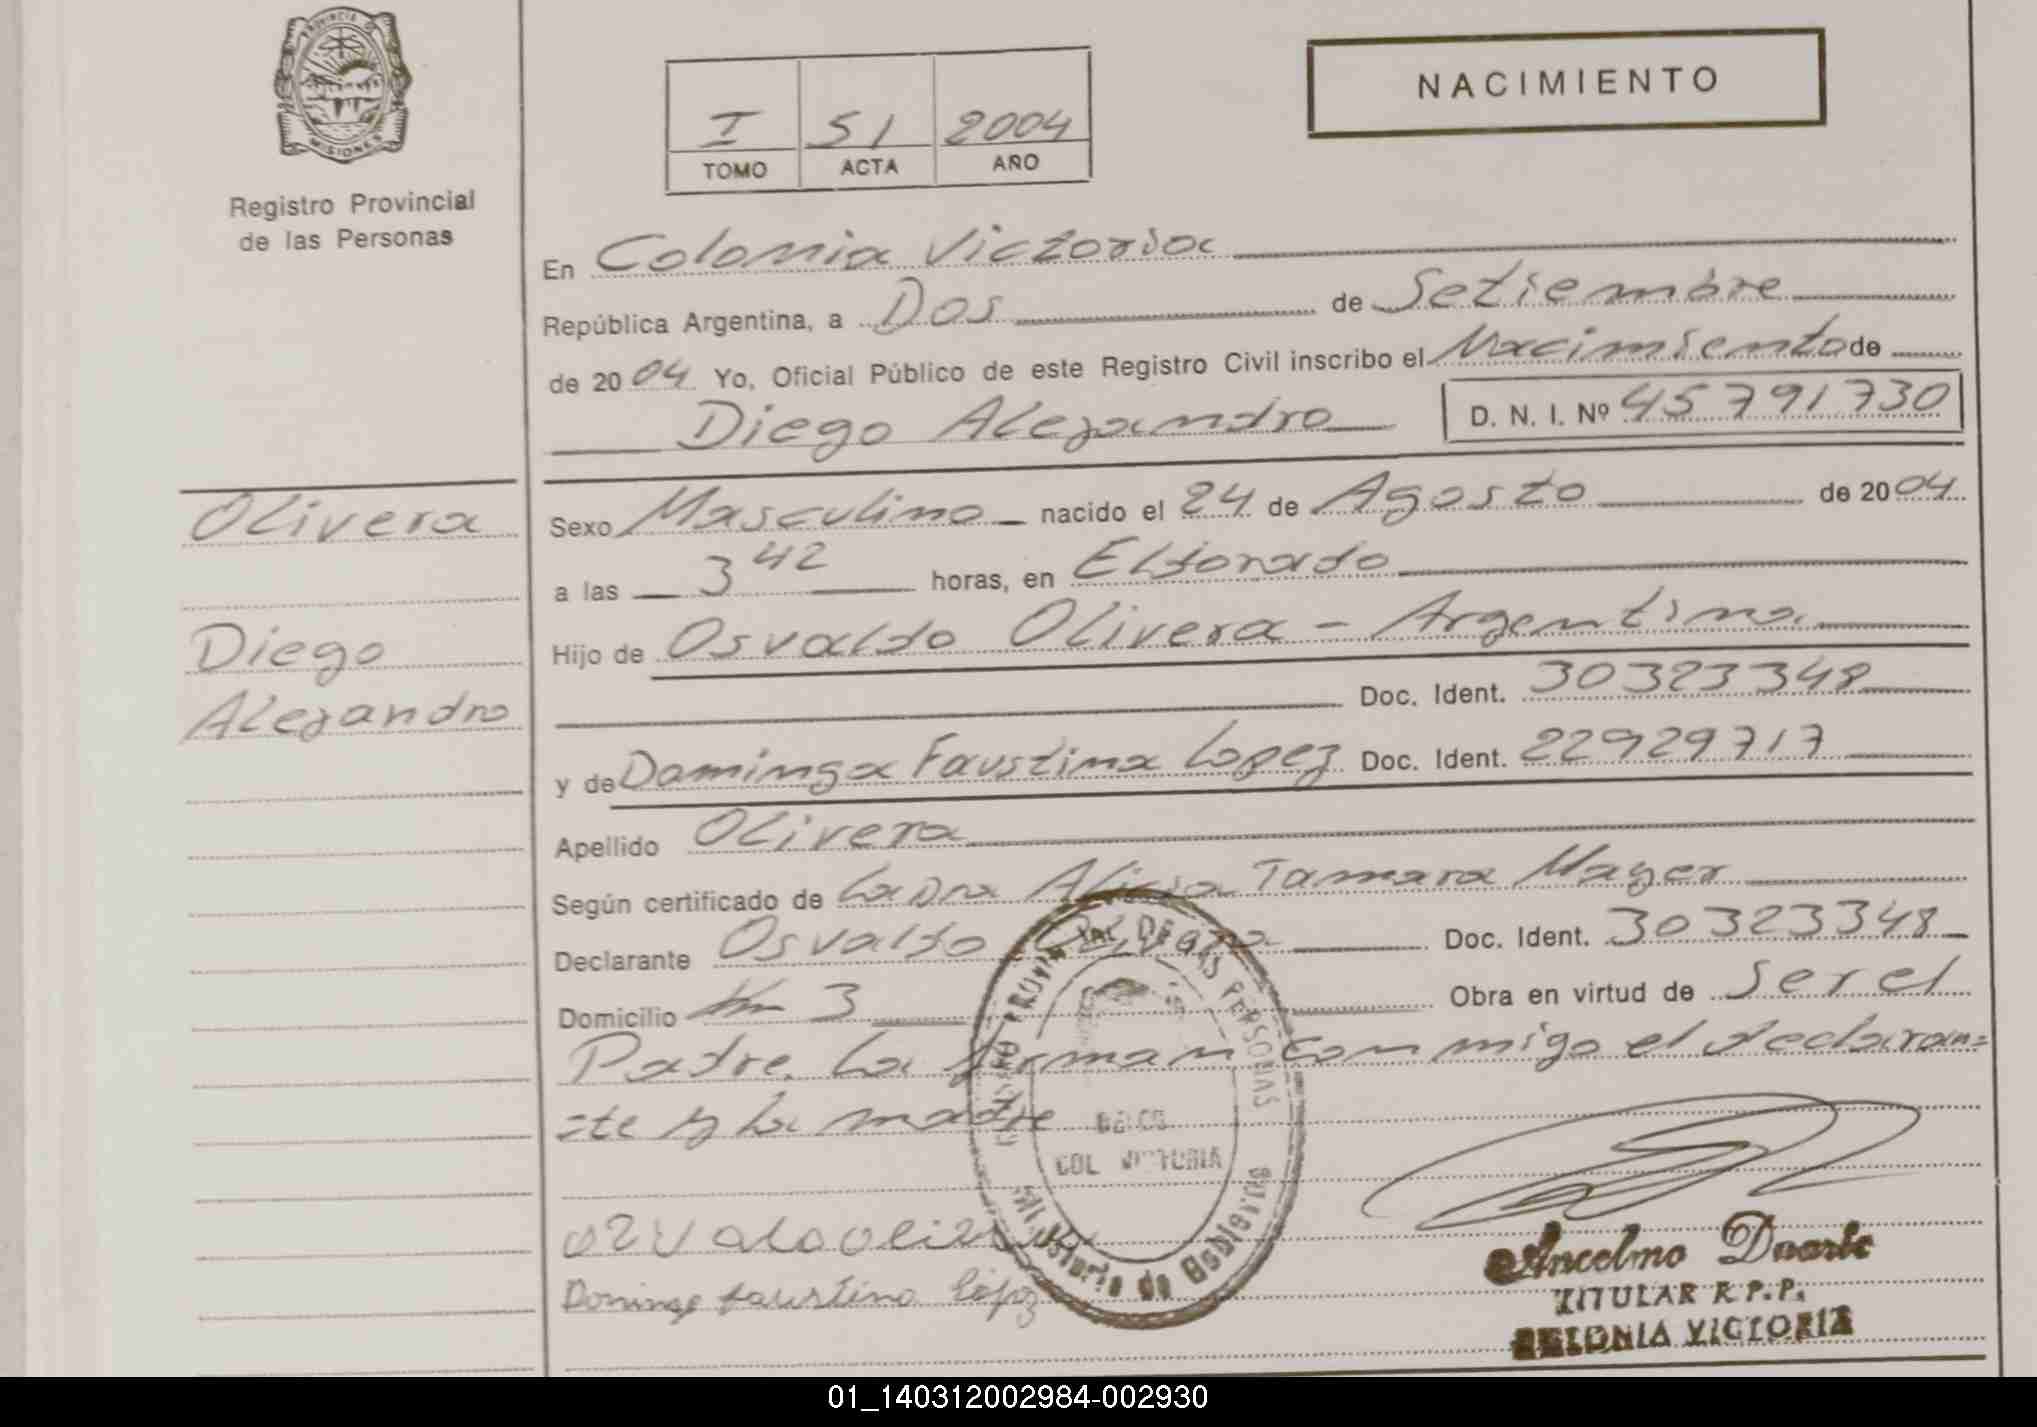 PROVINCIA DE
MISIONES
Registro Provincial
de las Personas
I 51 2004
TOMO ACTA AÑO
NACIMIENTO
En Colonia Victoria
República Argentina, a Dos de Setiembre
de 2004 Yo, Oficial Público de este Registro Civil inscribo el Nacimiento de
Diego Alejandro D. N. I. Nº 45791730
Olivera
Diego
Alejandro
Sexo Masculino nacido el 24 de Agosto de 2004
a las 3 42 horas, en Eldorado
Hijo de Osvaldo Olivera - Argentina
Doc. Ident. 30323348
y de Dominga Faustina Lopez Doc. Ident. 22929717
Apellido Olivera
Según certificado de La Dra Alicia Tamara Mayer
Declarante Osvaldo Olivera Doc. Ident. 30323348
Domicilio Km 3 Obra en virtud de Ser el
Padre. La firman conmigo el declaran=
=te y la madre
COL VICTORIA
Ministerio de Gobierno
Dominga faustina lópez
Ancelmo Duarte
TITULAR R.P.P.
COLONIA VICTORIA
01_140312002984-002930